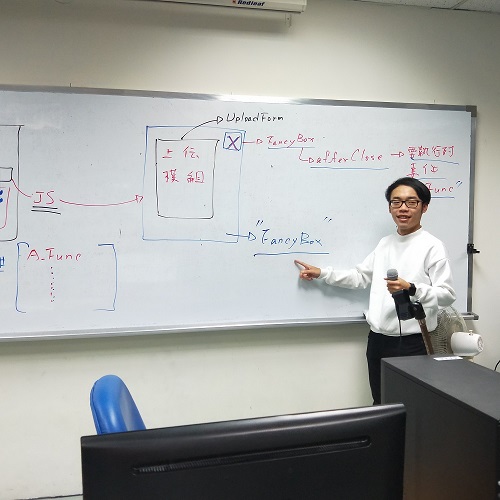 Redleaf
UploadForm
上傳
模組
X
FancyBox
afterClose
需執行的
事件
Func"
JS
"FancyBox"
A_Func